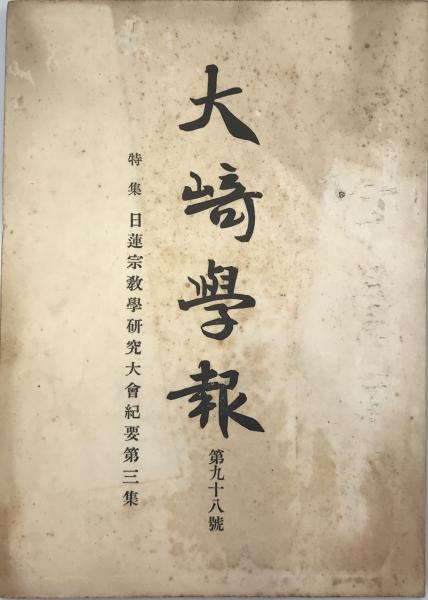 大﨑學報
第九十八號
特集 日蓮宗敎學硏究大會紀要第三集